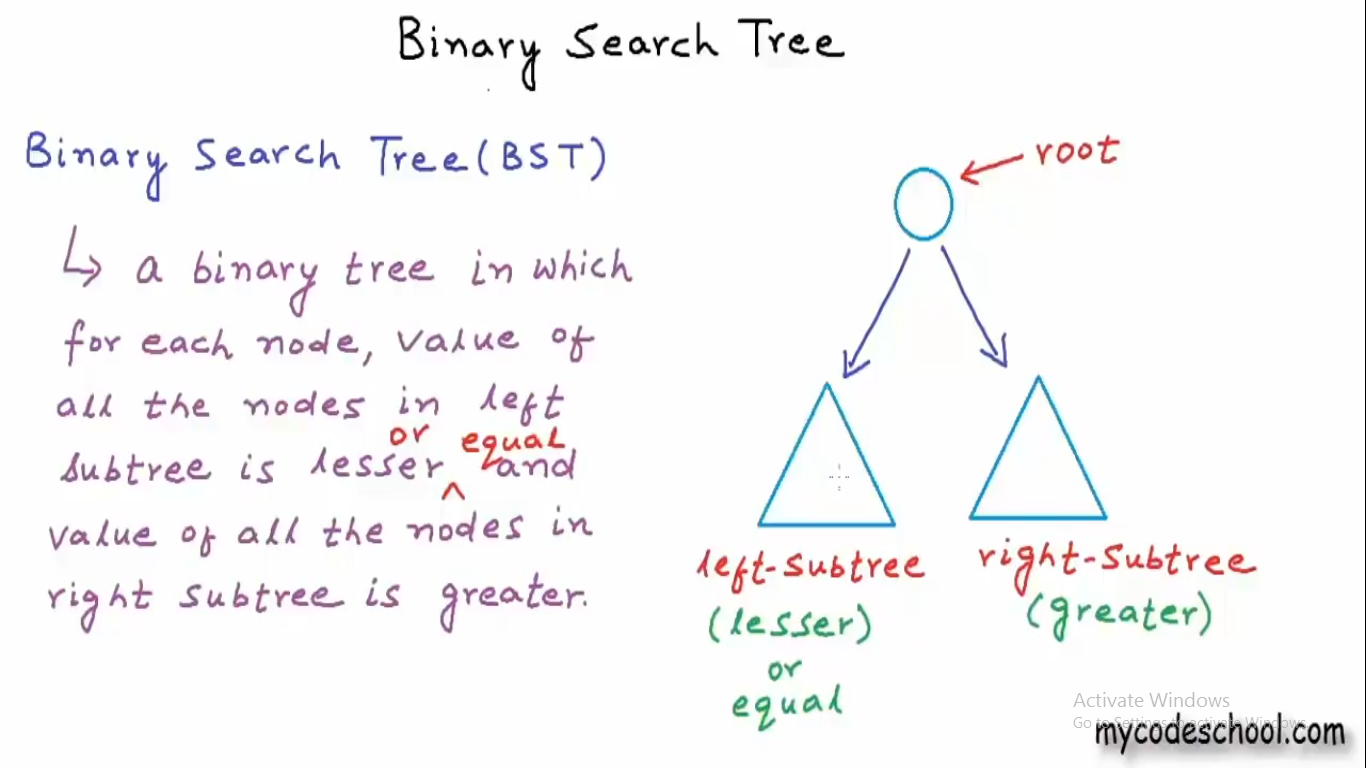 Binary Search Tree
Binary Search Tree (BST)
↳ a binary tree in which
for each node, value of
all the nodes in left
or equal
subtree is lesser ^ and
value of all the nodes in
right subtree is greater.
root
left-subtree
(lesser)
or
equal
right-subtree
(greater)
Activate Windows
Go to Settings to activate Windows.
mycodeschool.com